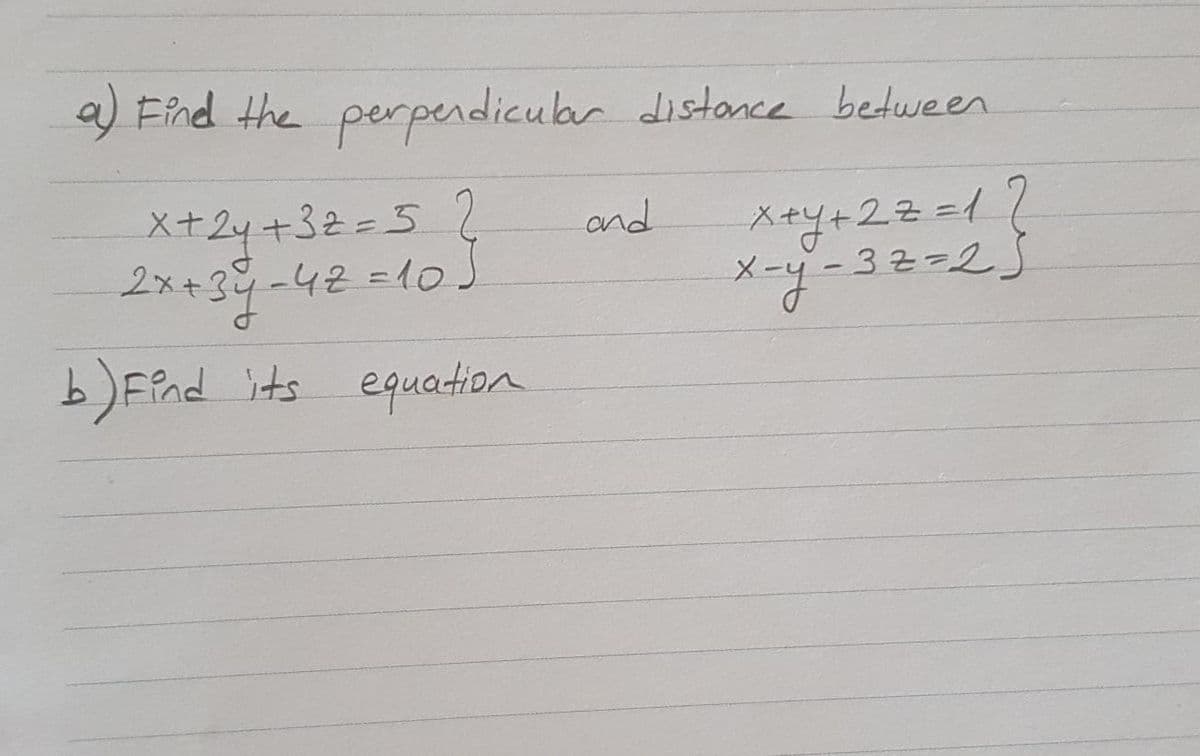 a) Find the perpendicular distance between
x+2y+3z=5 } and x+y+2z=1 }
2x+3y-4z=10 x-y-3z=2
b) Find its equation